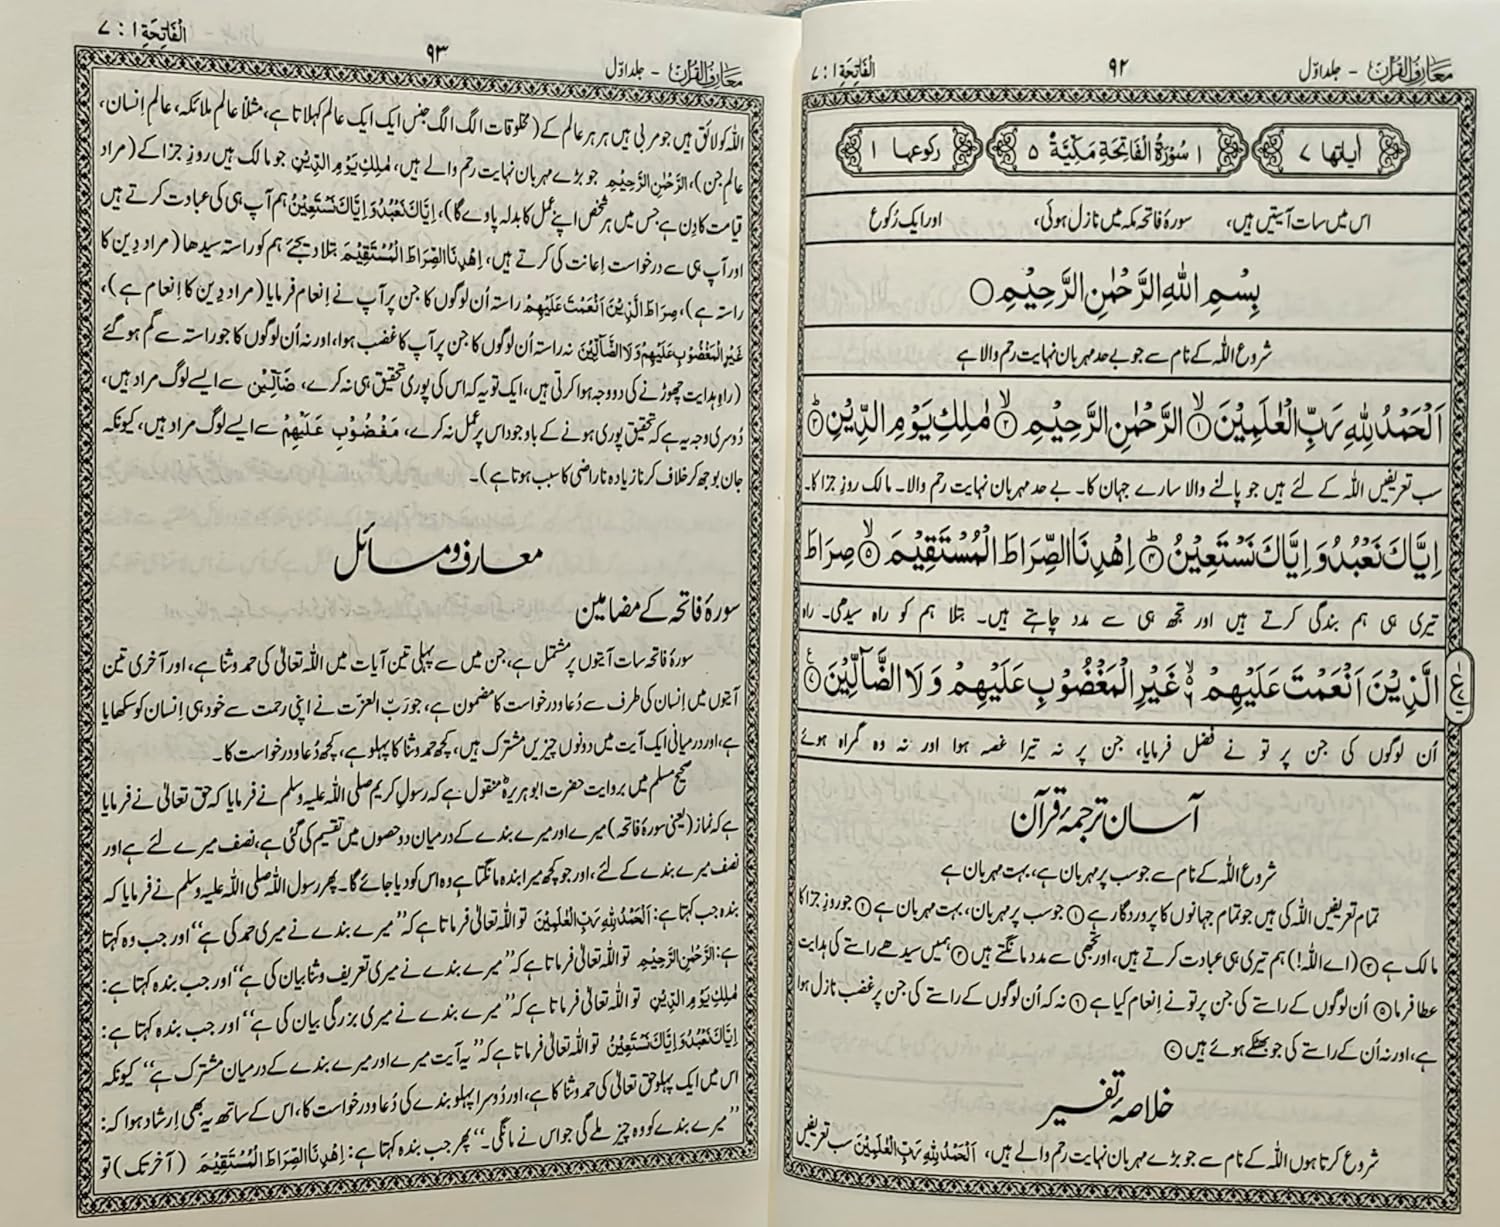 معارف القرآن - جلد اوّل
۹۲
الْفَاتِحَة ۱ : ۷
اٰیاتها ۷
۱ سُوْرَةُ الْفَاتِحَةِ مَكِّیَّةٌ ۵
رکوعها ۱
اس میں سات آیتیں ہیں، سورۂ فاتحہ مکہ میں نازل ہوئی، اور ایک رُکوع
بِسْمِ اللّٰهِ الرَّحْمٰنِ الرَّحِیْمِ
شروع اللہ کے نام سے جو بے حد مہربان نہایت رحم والا ہے
اَلْحَمْدُ لِلّٰهِ رَبِّ الْعٰلَمِیْنَ ۙ﴿۱﴾ الرَّحْمٰنِ الرَّحِیْمِ ۙ﴿۲﴾ مٰلِكِ یَوْمِ الدِّیْنِ ﴿۳﴾
سب تعریفیں اللہ کے لئے ہیں جو پالنے والا سارے جہان کا۔ بے حد مہربان نہایت رحم والا۔ مالک روزِ جزا کا۔
اِیَّاكَ نَعْبُدُ وَ اِیَّاكَ نَسْتَعِیْنُ ﴿۴﴾ اِهْدِنَا الصِّرَاطَ الْمُسْتَقِیْمَ ۙ﴿۵﴾ صِرَاطَ
تیری ہی ہم بندگی کرتے ہیں اور تجھ ہی سے مدد چاہتے ہیں۔ بتلا ہم کو راہ سیدھی۔ راہ
الَّذِیْنَ اَنْعَمْتَ عَلَیْهِمْ ۙ۬ۦ غَیْرِ الْمَغْضُوْبِ عَلَیْهِمْ وَ لَا الضَّآلِّیْنَ ﴿۷﴾
اُن لوگوں کی جن پر تو نے فضل فرمایا، جن پر نہ تیرا غصہ ہوا اور نہ وہ گمراہ ہوئے
آسان ترجمۂ قرآن
شروع اللہ کے نام سے جو سب پر مہربان ہے، بہت مہربان ہے
تمام تعریفیں اللہ کی ہیں جو تمام جہانوں کا پروردگار ہے ﴿۱﴾ جو سب پر مہربان، بہت مہربان ہے ﴿۲﴾ جو روزِ جزا کا
مالک ہے ﴿۳﴾ (اے اللہ!) ہم تیری ہی عبادت کرتے ہیں، اور تجھی سے مدد مانگتے ہیں ﴿۴﴾ ہمیں سیدھے راستے کی ہدایت
عطا فرما ﴿۵﴾ اُن لوگوں کے راستے کی جن پر تو نے اِنعام کیا ہے ﴿۶﴾ نہ کہ اُن لوگوں کے راستے کی جن پر غضب نازل ہوا
ہے، اور نہ اُن کے راستے کی جو بھٹکے ہوئے ہیں ﴿۷﴾
خلاصۂ تفسیر
شروع کرتا ہوں اللہ کے نام سے جو بڑے مہربان نہایت رحم والے ہیں، اَلْحَمْدُ لِلّٰهِ رَبِّ الْعٰلَمِیْنَ سب تعریفیں
معارف القرآن - جلد اوّل
۹۳
الْفَاتِحَة ۱ : ۷
اللہ کو لائق ہیں جو مربی ہیں ہر ہر عالم کے (مخلوقات الگ الگ جنس ایک ایک عالم کہلاتا ہے، مثلاً عالمِ ملائکہ، عالمِ اِنسان،
عالمِ جن)، الرَّحْمٰنِ الرَّحِیْمِ جو بڑے مہربان نہایت رحم والے ہیں، مٰلِكِ یَوْمِ الدِّیْنِ جو مالک ہیں روزِ جزا کے (مراد
قیامت کا دِن ہے جس میں ہر شخص اپنے عمل کا بدلہ پاوے گا)، اِیَّاكَ نَعْبُدُ وَ اِیَّاكَ نَسْتَعِیْنُ ہم آپ ہی کی عبادت کرتے ہیں
اور آپ ہی سے درخواست اِعانت کی کرتے ہیں، اِهْدِنَا الصِّرَاطَ الْمُسْتَقِیْمَ بتلا دیجئے ہم کو راستہ سیدھا (مراد دِین کا
راستہ ہے)، صِرَاطَ الَّذِیْنَ اَنْعَمْتَ عَلَیْهِمْ راستہ اُن لوگوں کا جن پر آپ نے اِنعام فرمایا (مراد دِین کا اِنعام ہے)،
غَیْرِ الْمَغْضُوْبِ عَلَیْهِمْ وَ لَا الضَّآلِّیْنَ نہ راستہ اُن لوگوں کا جن پر آپ کا غضب ہوا، اور نہ اُن لوگوں کا جو راستہ سے گم ہوگئے
(راہِ ہدایت چھوڑنے کی دو وجہ ہوا کرتی ہیں، ایک تو یہ کہ اس کی پوری تحقیق ہی نہ کرے، ضَآلِّیْنَ سے ایسے لوگ مراد ہیں،
دُوسری وجہ یہ ہے کہ تحقیق پوری ہونے کے باوجود اس پر عمل نہ کرے، مَغْضُوْبِ عَلَیْهِمْ سے ایسے لوگ مراد ہیں، کیونکہ
جان بوجھ کر خلاف کرنا زیادہ ناراضی کا سبب ہوتا ہے)۔
معارف و مسائل
سورۂ فاتحہ کے مضامین
سورۂ فاتحہ سات آیتوں پر مشتمل ہے، جن میں سے پہلی تین آیات میں اللہ تعالیٰ کی حمد و ثنا ہے، اور آخری تین
آیتوں میں اِنسان کی طرف سے دُعا و درخواست کا مضمون ہے، جو رَبّ العزّت نے اپنی رحمت سے خود ہی اِنسان کو سکھایا
ہے، اور درمیانی ایک آیت میں دونوں چیزیں مشترک ہیں، کچھ حمد و ثنا کا پہلو ہے، کچھ دُعا و درخواست کا۔
صحیح مسلم میں بروایت حضرت ابوہریرہؓ منقول ہے کہ رسولِ کریم صلی اللہ علیہ وسلم نے فرمایا کہ حق تعالیٰ نے فرمایا
ہے کہ نماز (یعنی سورۂ فاتحہ) میرے اور میرے بندے کے درمیان دو حصوں میں تقسیم کی گئی ہے، نصف میرے لئے ہے اور
نصف میرے بندے کے لئے، اور جو کچھ میرا بندہ مانگتا ہے وہ اس کو دیا جائے گا۔ پھر رسول اللہ صلی اللہ علیہ وسلم نے فرمایا کہ
بندہ جب کہتا ہے: اَلْحَمْدُ لِلّٰهِ رَبِّ الْعٰلَمِیْنَ تو اللہ تعالیٰ فرماتا ہے کہ ”میرے بندے نے میری حمد کی ہے“ اور جب وہ کہتا
ہے: الرَّحْمٰنِ الرَّحِیْمِ تو اللہ تعالیٰ فرماتا ہے کہ ”میرے بندے نے میری تعریف و ثنا بیان کی ہے“ اور جب بندہ کہتا ہے:
مٰلِكِ یَوْمِ الدِّیْنِ تو اللہ تعالیٰ فرماتا ہے کہ ”میرے بندے نے میری بزرگی بیان کی ہے“ اور جب بندہ کہتا ہے:
اِیَّاكَ نَعْبُدُ وَ اِیَّاكَ نَسْتَعِیْنُ تو اللہ تعالیٰ فرماتا ہے کہ ”یہ آیت میرے اور میرے بندے کے درمیان مشترک ہے“ کیونکہ
اس میں ایک پہلو حق تعالیٰ کی حمد و ثنا کا ہے، اور دُوسرا پہلو بندے کی دُعا و درخواست کا، اس کے ساتھ یہ بھی اِرشاد ہوا کہ:
”میرے بندے کو وہ چیز ملے گی جو اس نے مانگی۔“ پھر جب بندہ کہتا ہے: اِهْدِنَا الصِّرَاطَ الْمُسْتَقِیْمَ (آخر تک) تو